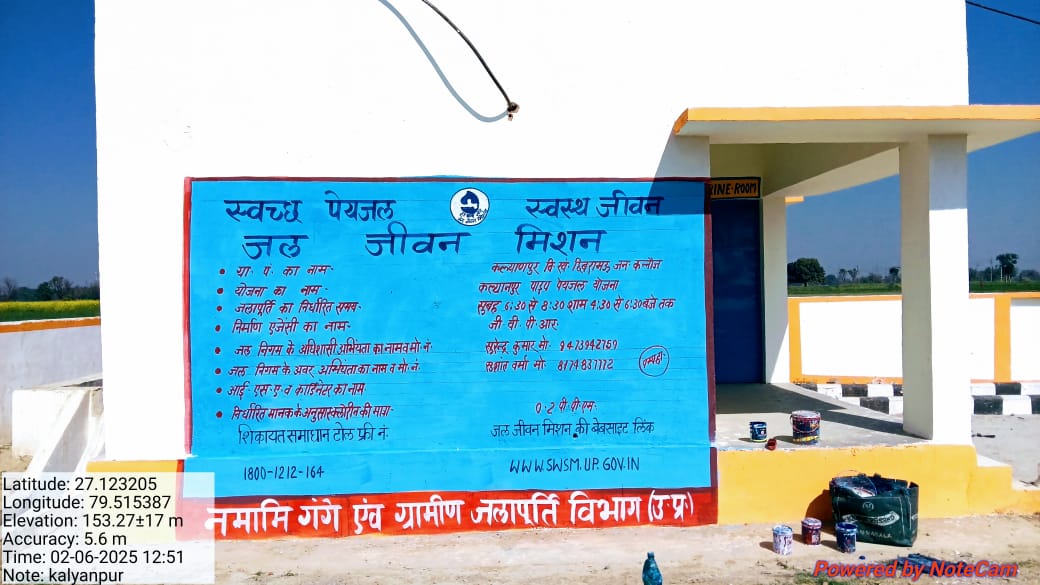 स्वच्छ पेयजल स्वस्थ जीवन
जल जीवन मिशन
RINE-ROOM
• ग्रा. पं. का नाम- कल्याणपुर वि.ख. छिबरामऊ, जन. कन्नौज
• योजना का नाम- कल्यानपुर पाइप पेयजल योजना
• जलापूर्ति का निर्धारित समय- सुबह 6:30 से 8:30 शाम 4:30 से 6:30 बजे तक
• निर्माण एजेंसी का नाम- जी वी पी आर.
• जल निगम के अधिशासी अभियंता का नाम व मो. नं. सुरेन्द्र कुमार मो. 9473942759
• जल निगम के अवर अभियंता का नाम व मो. नं. वर्मा मो. 8174837772
• आई- एस- ए- व कार्डिनेटर का नाम
• निर्धारित मानक के अनुसार क्लोरीन की मात्रा- 0.2 पी. पी. एम.
शिकायत समाधान टोल फ्री नं. जल जीवन मिशन की बेबसाइट लिंक
1800-1212-164 WWW.SWSM.UP.GOV.IN
नमामि गंगे एंव ग्रामीण जलापूर्ति विभाग (उ.प्र.)
Latitude: 27.123205
Longitude: 79.515387
Elevation: 153.27±17 m
Accuracy: 5.6 m
Time: 02-06-2025 12:51
Note: kalyanpur
Powered by NoteCam